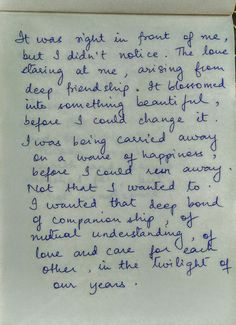 It was right in front of me,
but I didn't notice. The love
staring at me, arising from
deep friendship. It blossomed
into something beautiful,
before I could change it.
I was being carried away
on a wave of happiness,
before I could run away.
Not that I wanted to.
I wanted that deep bond
of companionship, of
mutual understanding, of
love and care for each
other, in the twilight of
our years.